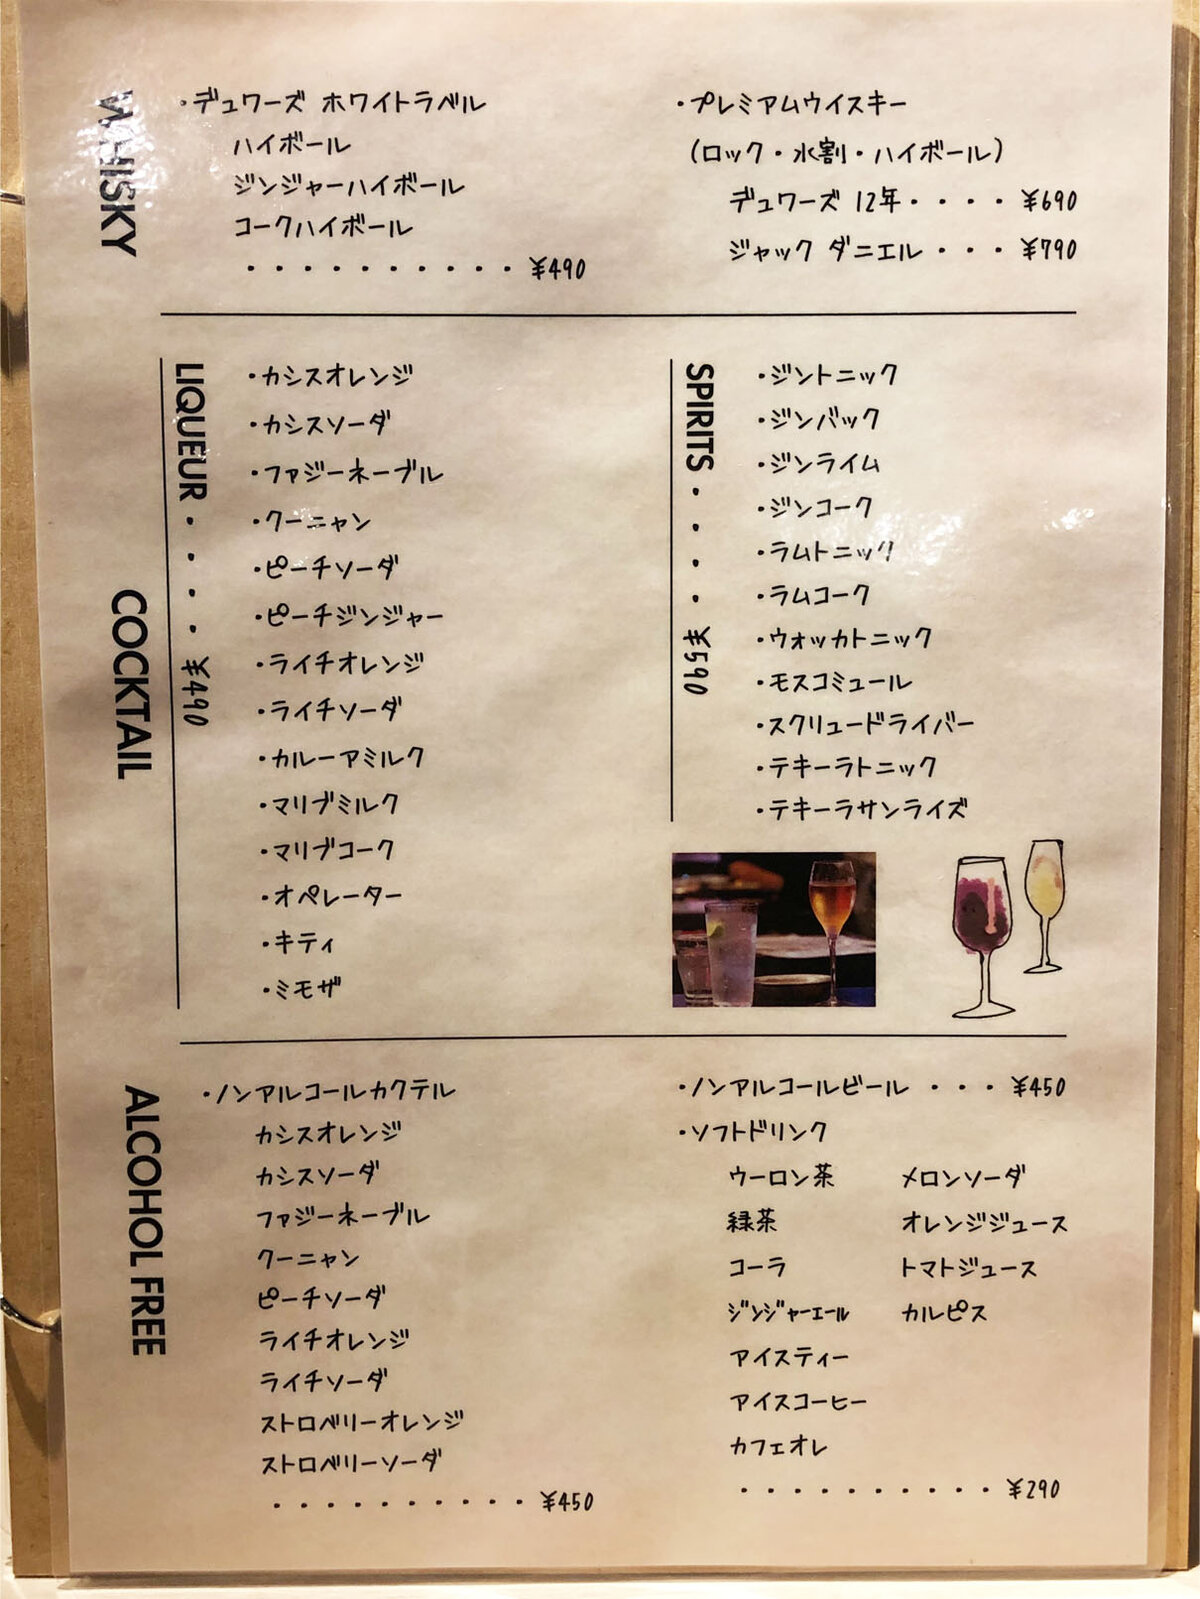 WHISKY
・デュワーズ ホワイトラベル
ハイボール
ジンジャーハイボール
コークハイボール
・・・・・・・・・・・¥490
・プレミアムウイスキー
（ロック・水割・ハイボール）
デュワーズ 12年・・・・¥690
ジャック ダニエル・・・¥790
COCKTAIL
LIQUEUR・・・・¥490
・カシスオレンジ
・カシスソーダ
・ファジーネーブル
・クーニャン
・ピーチソーダ
・ピーチジンジャー
・ライチオレンジ
・ライチソーダ
・カルーアミルク
・マリブミルク
・マリブコーク
・オペレーター
・キティ
・ミモザ
SPIRITS・・・・¥590
・ジントニック
・ジンバック
・ジンライム
・ジンコーク
・ラムトニック
・ラムコーク
・ウォッカトニック
・モスコミュール
・スクリュードライバー
・テキーラトニック
・テキーラサンライズ
ALCOHOL FREE
・ノンアルコールカクテル
カシスオレンジ
カシスソーダ
ファジーネーブル
クーニャン
ピーチソーダ
ライチオレンジ
ライチソーダ
ストロベリーオレンジ
ストロベリーソーダ
・・・・・・・・・・¥450
・ノンアルコールビール・・・¥450
・ソフトドリンク
ウーロン茶 メロンソーダ
緑茶 オレンジジュース
コーラ トマトジュース
ジンジャーエール カルピス
アイスティー
アイスコーヒー
カフェオレ
・・・・・・・・・・¥290